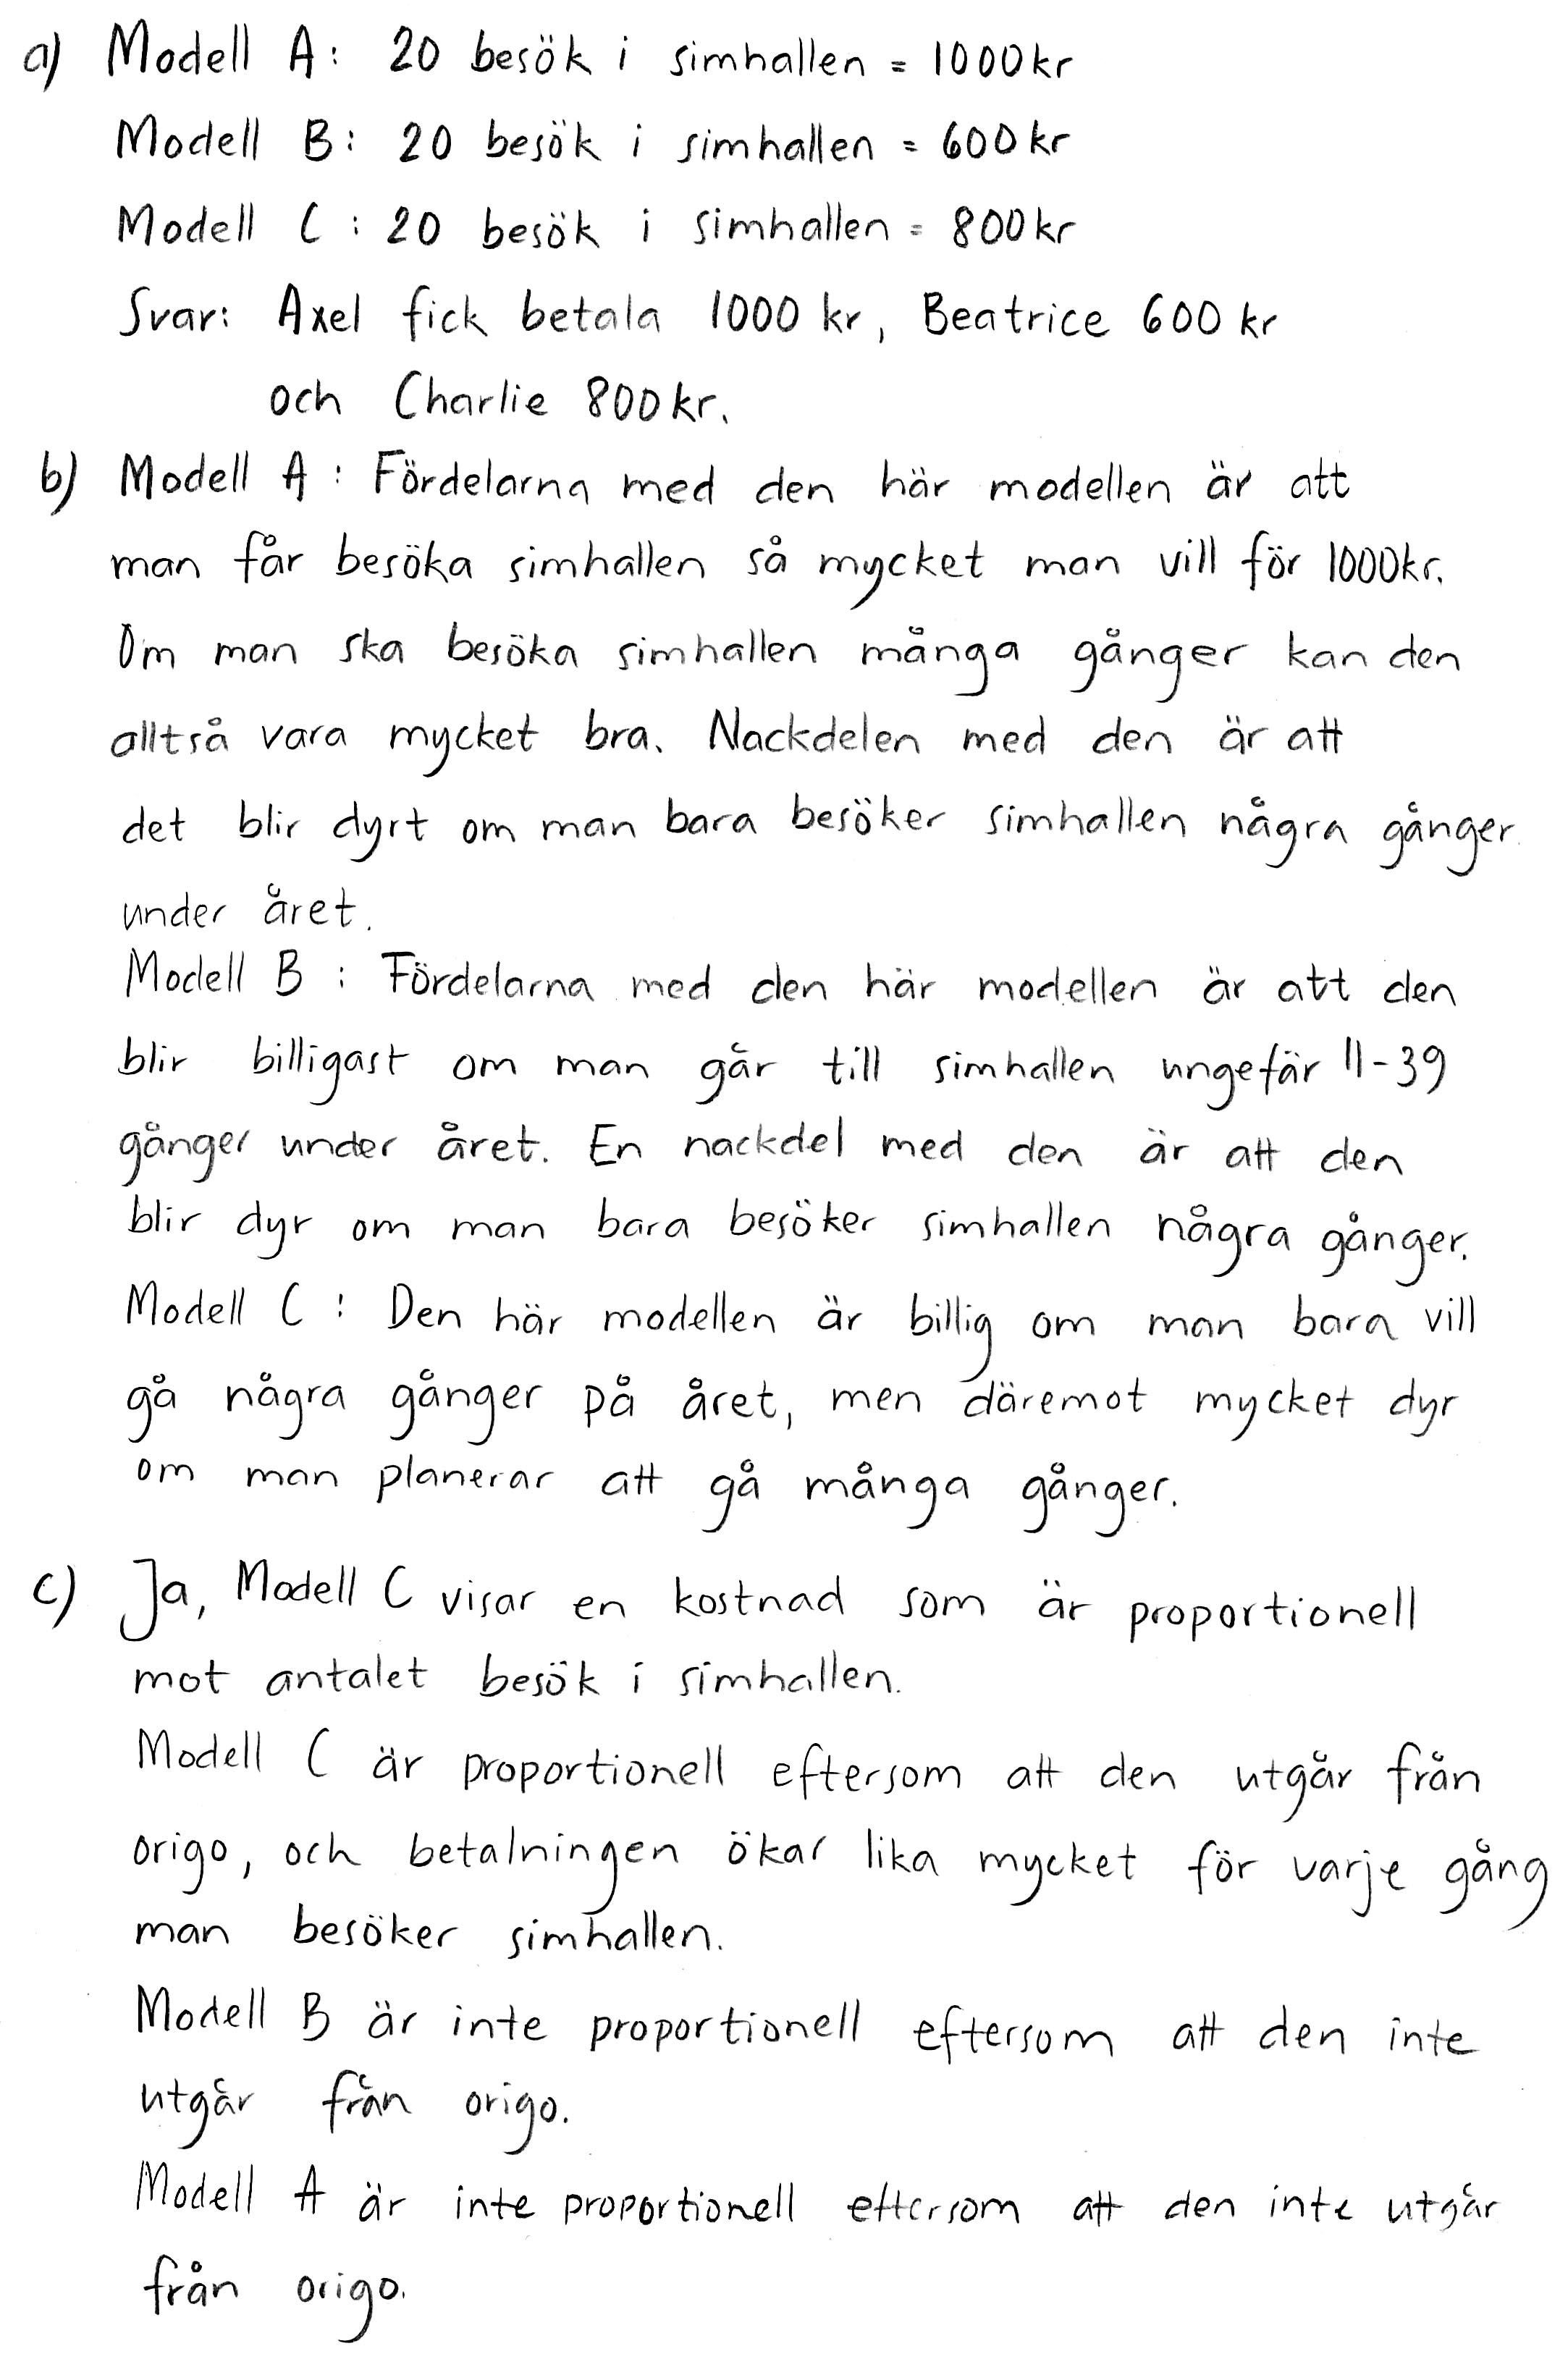 a) Modell A: 20 besök i simhallen = 1000kr
Modell B: 20 besök i simhallen = 600kr
Modell C: 20 besök i simhallen = 800kr
Svar: Axel fick betala 1000 kr, Beatrice 600 kr
och Charlie 800kr.
b) Modell A: Fördelarna med den här modellen är att
man får besöka simhallen så mycket man vill för 1000kr.
Om man ska besöka simhallen många gånger kan den
alltså vara mycket bra. Nackdelen med den är att
det blir dyrt om man bara besöker simhallen några gånger
under året.
Modell B: Fördelarna med den här modellen är att den
blir billigast om man går till simhallen ungefär 11-39
gånger under året. En nackdel med den är att den
blir dyr om man bara besöker simhallen några gånger.
Modell C: Den här modellen är billig om man bara vill
gå några gånger på året, men däremot mycket dyr
om man planerar att gå många gånger.
c) Ja, Modell C visar en kostnad som är proportionell
mot antalet besök i simhallen.
Modell C är proportionell eftersom att den utgår från
origo, och betalningen ökar lika mycket för varje gång
man besöker simhallen.
Modell B är inte proportionell eftersom att den inte
utgår från origo.
Modell A är inte proportionell eftersom att den inte utgår
från origo.